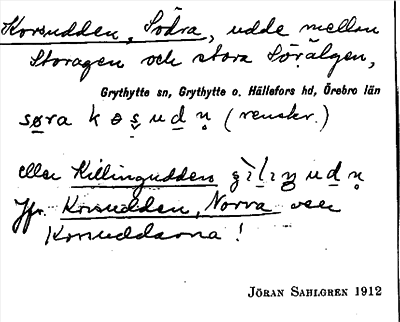 Korsudden, Södra, udde mellan
Storagen och stora Sörälgen,
Grythytte sn, Grythytte o. Hällefors hd, Örebro län
søra k ɵ s̬ u d n̥ (renskr.)
eller Killingudden
Jfr. Korsudden, Norra och
Korsuddarna!
JÖRAN SAHLGREN 1912